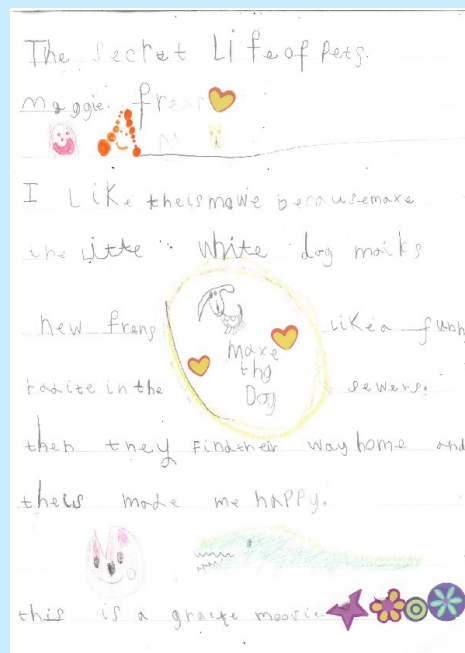 The secret Life of Pets.
Maggie.
I Like theis mowe because maxe
the Litte white dog maiks
new frens Like a funny
in the sewers.
Maxe
the
Dog
then they Find ther way home and
theis made me happy.
this is a graite moovie